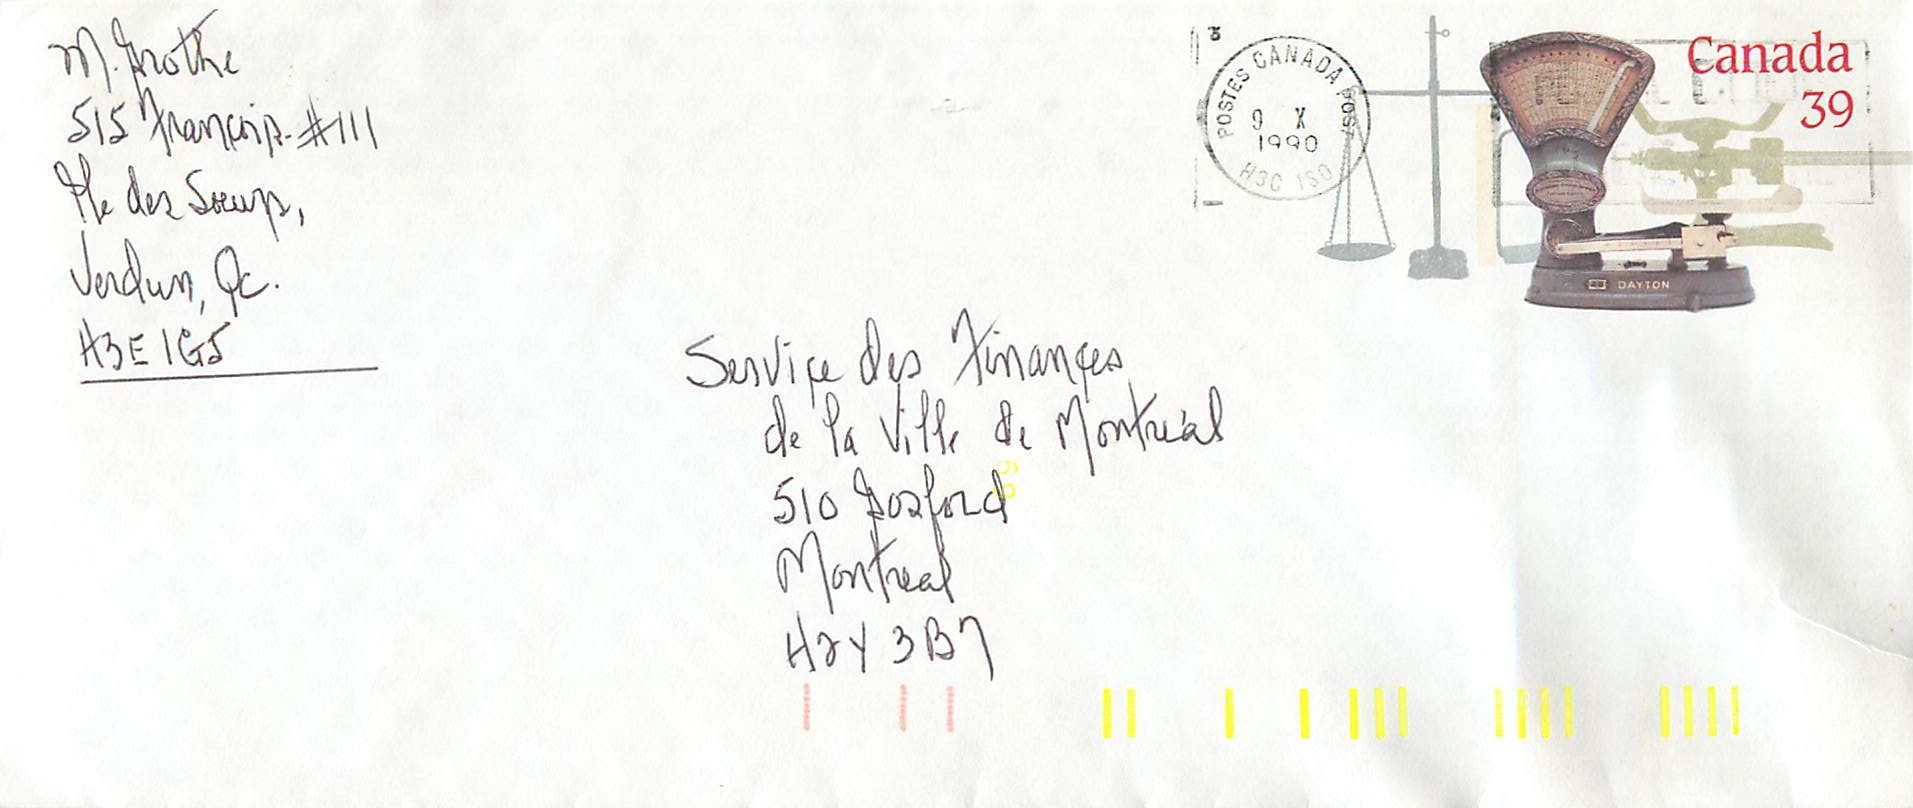 M. Grothé
515 François - #111
Île des Soeurs,
Verdun, Qc.
H3E 1G5
3
POSTES CANADA POST
9 X
1990
H3C 1S0
Canada
39
DAYTON
Service des Finances
de la Ville de Montréal
510 Gosford
Montréal
H2Y 3B7